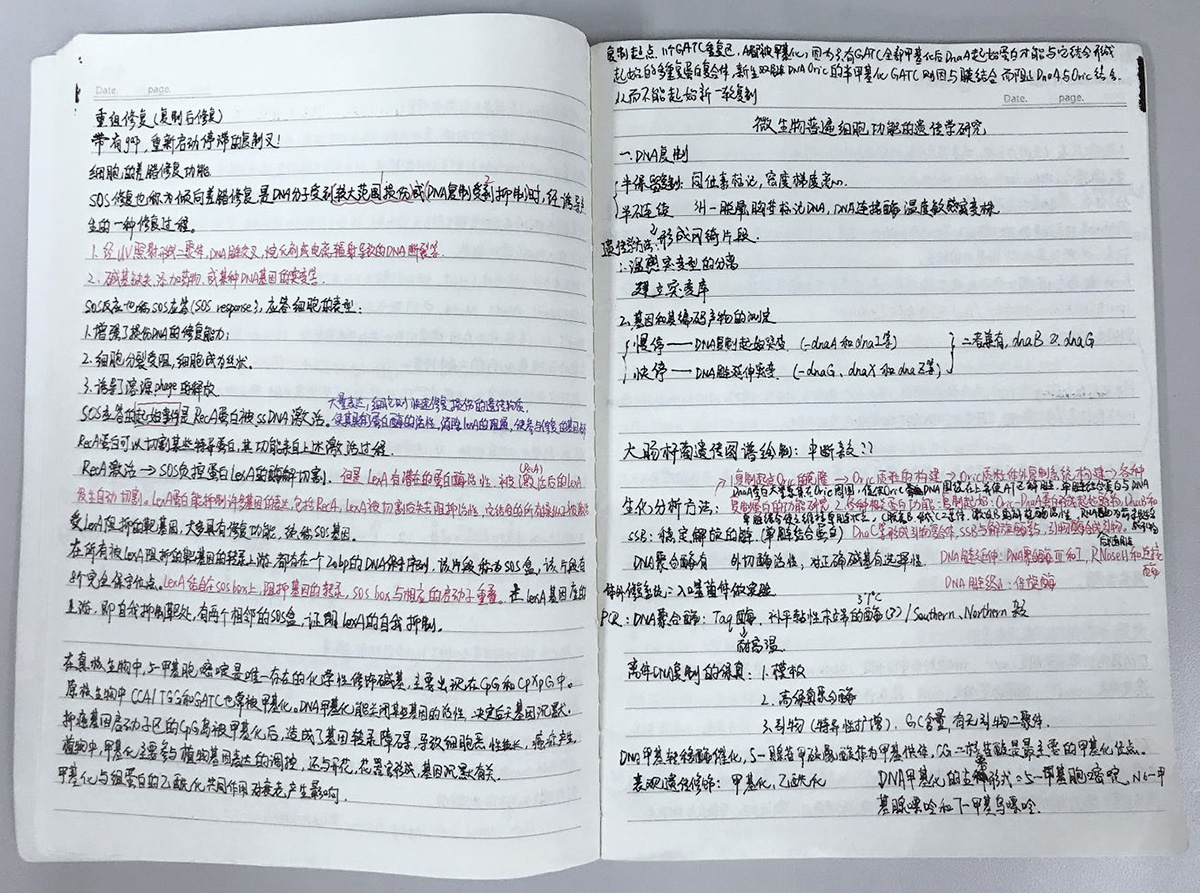 Date. page.
重组修复(复制后修复)
带有gap,重新启动停滞的复制叉!
细胞的差错修复功能
SOS修复也称为倾向差错修复是DNA分子受到较大范围损伤或(DNA复制受到抑制)时,经诱导产
生的一种修复过程。
1. 经UV照射形成二聚体,DNA链交叉,烷化剂或电离辐射导致的DNA断裂等.
2. 碱基缺失、添加药物、或某种DNA基因的突变等.
SOS反应也称SOS应答(SOS response),应答细胞的表型:
1.增强了损伤DNA的修复能力;
2.细胞分裂受阻,细胞成为丝状。
3.诱导了溶源phage的释放
大量表达,细胞及时快速修复损伤的遗传物质.
SOS应答的起始事件是RecA蛋白被ssDNA激活。使其具有蛋白酶的活性,消除lexA的阻遏,使参与修复的基因
RecA蛋白可以切割某些特导蛋白,其功能来自上述激活过程.
(RecA)
RecA激活→SOS负控蛋白LexA的酶解切割. 但是LexA有潜在的蛋白酶活性,被激活后的lexA
发生自动切割。LexA蛋白能抑制许多基因的表达,包括RecA、LexA被切割后失去阻抑活性,
受LexA阻抑的靶基因,大多具有修复功能,统称SOS基因.
在所有被LexA阻抑的靶基因的转录上游,都存在一个20bp的DNA保守序列,该片段称为SOS盒,该片段有
8个完全保守位点。LexA结合在SOS box上,阻抑基因的转录,SOS box与相应的启动子重叠. 在lexA基因座的
上游,即自我抑制靶处,有两个相邻的SOS盒,证明lexA的自我抑制.
在真核生物中,5-甲基胞嘧啶是唯一存在的化学性修饰碱基,主要出现在CpG和CpXpG中.
原核生物中CCA/TGG和GATC也常被甲基化。DNA甲基化能关闭某些基因的活性,决定后天基因沉默.
抑癌基因启动子区的CpG岛被甲基化后,造成了基因转录障碍,导致细胞恶性生长,癌症产生.
植物中,甲基化主要参与植物基因表达的调控,还与开花、花器官形成、基因沉默有关.
甲基化与组蛋白的乙酰化共同作用对表达产生影响.
复制起点 11个GATC重复区,A都被甲基化,因为只有GATC全部甲基化后DnaA起始蛋白才能与它结合形成
起始的多重复蛋白复合体,新生双链DNA Oric的半甲基化GATC则因与膜结合而阻止DnaA与Oric结合.
从而不能起始新一轮复制
Date. page.
微生物普遍细胞功能的遗传学研究
一.DNA复制
半保留复制:同位素标记,密度梯度离心.
半不连续 3H-脱氧胸苷标记DNA,DNA连接酶温度敏感突变株.
遗传学方法:形成冈崎片段.
1.温敏突变型的分离
建立突变库
2.基因和其编码产物的测定
慢停——DNA复制起始突变 (-dnaA和dnaI等)
快停——DNA链延伸突变 (-dnaG、dnaX和dnaZ等)
二者兼有,dnaB及dnaG
大肠杆菌遗传图谱绘制:中断杂交??
1.复制起点Oric的确定→Oric质粒的构建→Oric质粒体外复制系统构建→各种
DnaA蛋白大量聚集在Oric周围,
生化分析方法:复制蛋白的功能研究
SSB:稳定解放的链.(单链结合蛋白)
DNA聚合酶有 外切酶活性,对正确碱基有选择性. DNA链延伸:DNA聚合酶III和I,RNaseH和连接酶
DNA链终止:促旋酶
37℃
PCR:DNA聚合酶:Taq酶、补平黏性末端的酶(?)/Southern、Northern杂交
耐高温
离体DNA复制的保真:1.模板
2.高保真聚合酶
3.引物(特异性扩增),GC含量,有无引物二聚体.
DNA甲基转移酶催化,S-腺苷甲硫氨酸作为甲基供体,CG二核苷酸是最主要的甲基化位点.
表观遗传修饰:甲基化,乙酰化 DNA甲基化的主要形式=5-甲基胞嘧啶,N6-甲
基腺嘌呤和7-甲基鸟嘌呤.